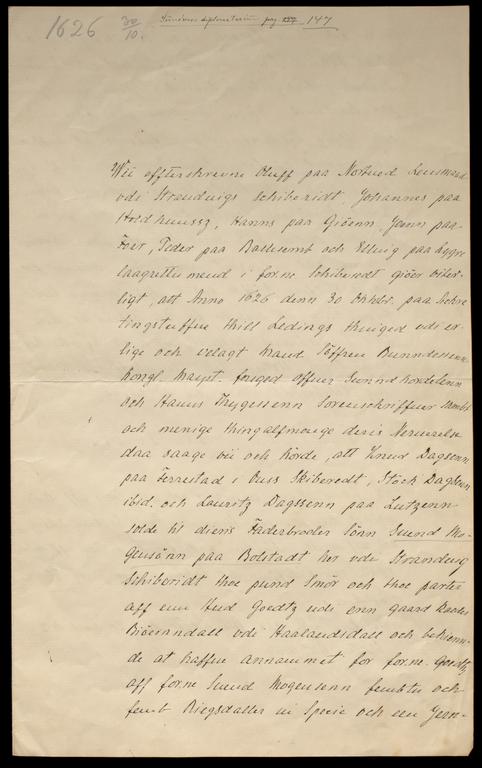 1626 30/10. Sunnives diplomatarium pag 147
Wii effterskrevne Oluff paa Nortued Lensmand
vdi Strandvigs Schiberidt, Johannes paa
Holdhuussz, Hanns paa Giöenn, Joenn paa
Foer, Peder paa Bachsemb och Elluig paa Lygre
laugrettismend i for:ne Schiberedt giöer viter-
ligt, att Anno 1626 denn 30 Oktobr. paa Sechre
tingstuffue thill Ledings thinged udi er-
lige och velagt Mand Söffren Bunndessenn
kongl. Mayst. fouged offuer Sunndhordelenn
och Hanns Thygessenn Sorenschriffuer sambt
och menige thingalfmouge deris Neruerelse
daa saage vii och hörde, att Knud Dagsenn
paa Ferrestad i Ouss Skiberedt, Stöck Dagssen
ibid. och Lauritz Dagssenn paa Lutzenn
solde til dieris Faderbroder Sönn Suend Mo-
gensönn paa Bolstadt her vdi Strandvig
Schiberidt thoe pund Smör och thoe parter
aff enn Hud Goedtz udi enn gaard kaldes
Biöernndall vdi Haalandsdall och bekienn-
de at haffue annammet for for.ne Goedtz
aff for.ne Suend Mogensenn fembtti och
femb Riegsdaller in Specie och een Jern-